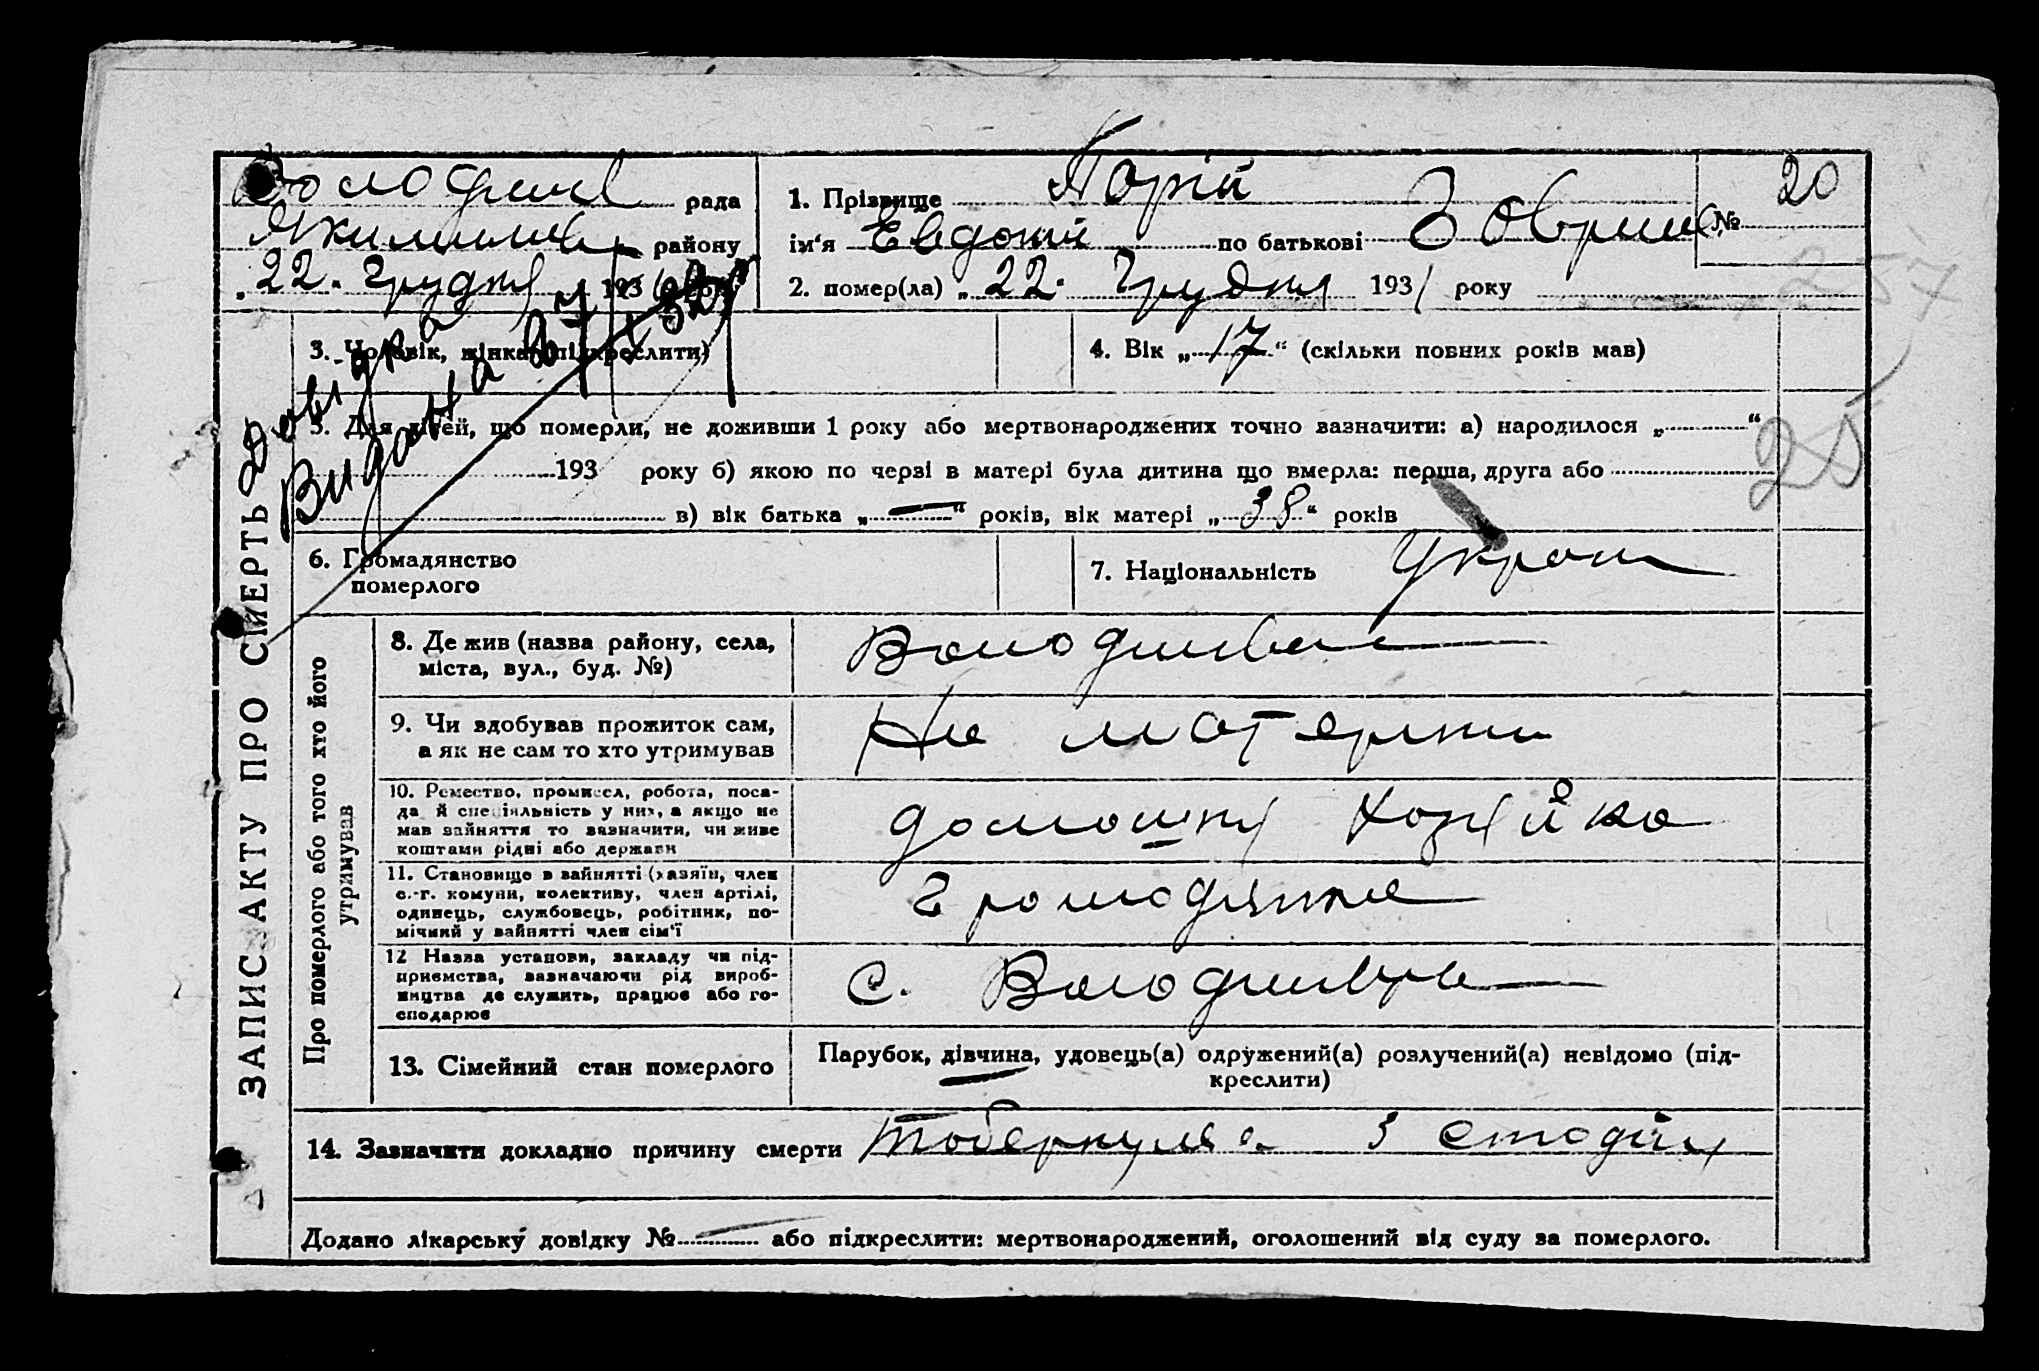 рада
району
22. Грудня 1931 року
1. Прізвище Порій № 20
ім'я Евдокії по батькові
2. помер(ла) „22“ Грудня 1931 року
257
ЗАПИС АКТУ ПРО СМЕРТЬ
Довідка
Видана
3. Чоловік, жінка (підкреслити)
4. Вік „17“ (скільки повних років мав)
5. Для дітей, що померли, не доживши 1 року або мертвонароджених точно вазначити: а) народилося „ “
193 року б) якою по черзі в матері була дитина що вмерла: перша, друга або
в) вік батька „—“ років, вік матері „38“ років
25
6. Громадянство
померлого
7. Національність Украт
Про померлого або того хто його
утримував
8. Де жив (назва району, села,
міста, вул., буд. №)
9. Чи здобував прожиток сам,
а як не сам то хто утримував
На матерями
10. Ремество, промисел, робота, поса-
да й спеціяльність у них, а якщо не
мав зайняття то вазначити, чи живе
коштами рідні або держави
домошня хозяйка
11. Становище в зайнятті (хазяїн, член
с.-г. комуни, колективу, член артілі,
одинець, службовець, робітник, по-
мічний у зайнятті член сім'ї
Громодянка
12 Назва установи, закладу чи під-
приємства, вазначаючи рід вироб-
ництва де служить, працює або го-
сподарює
с.
13. Сімейний стан померлого
Парубок, дівчина, удовець(а) одружений(а) розлучений(а) невідомо (під-
креслити)
14. Зазначити докладно причину смерти Тоберкульоз 3 стодия
Додано лікарську довідку № — або підкреслити: мертвонароджений, оголошений від суду за померлого.